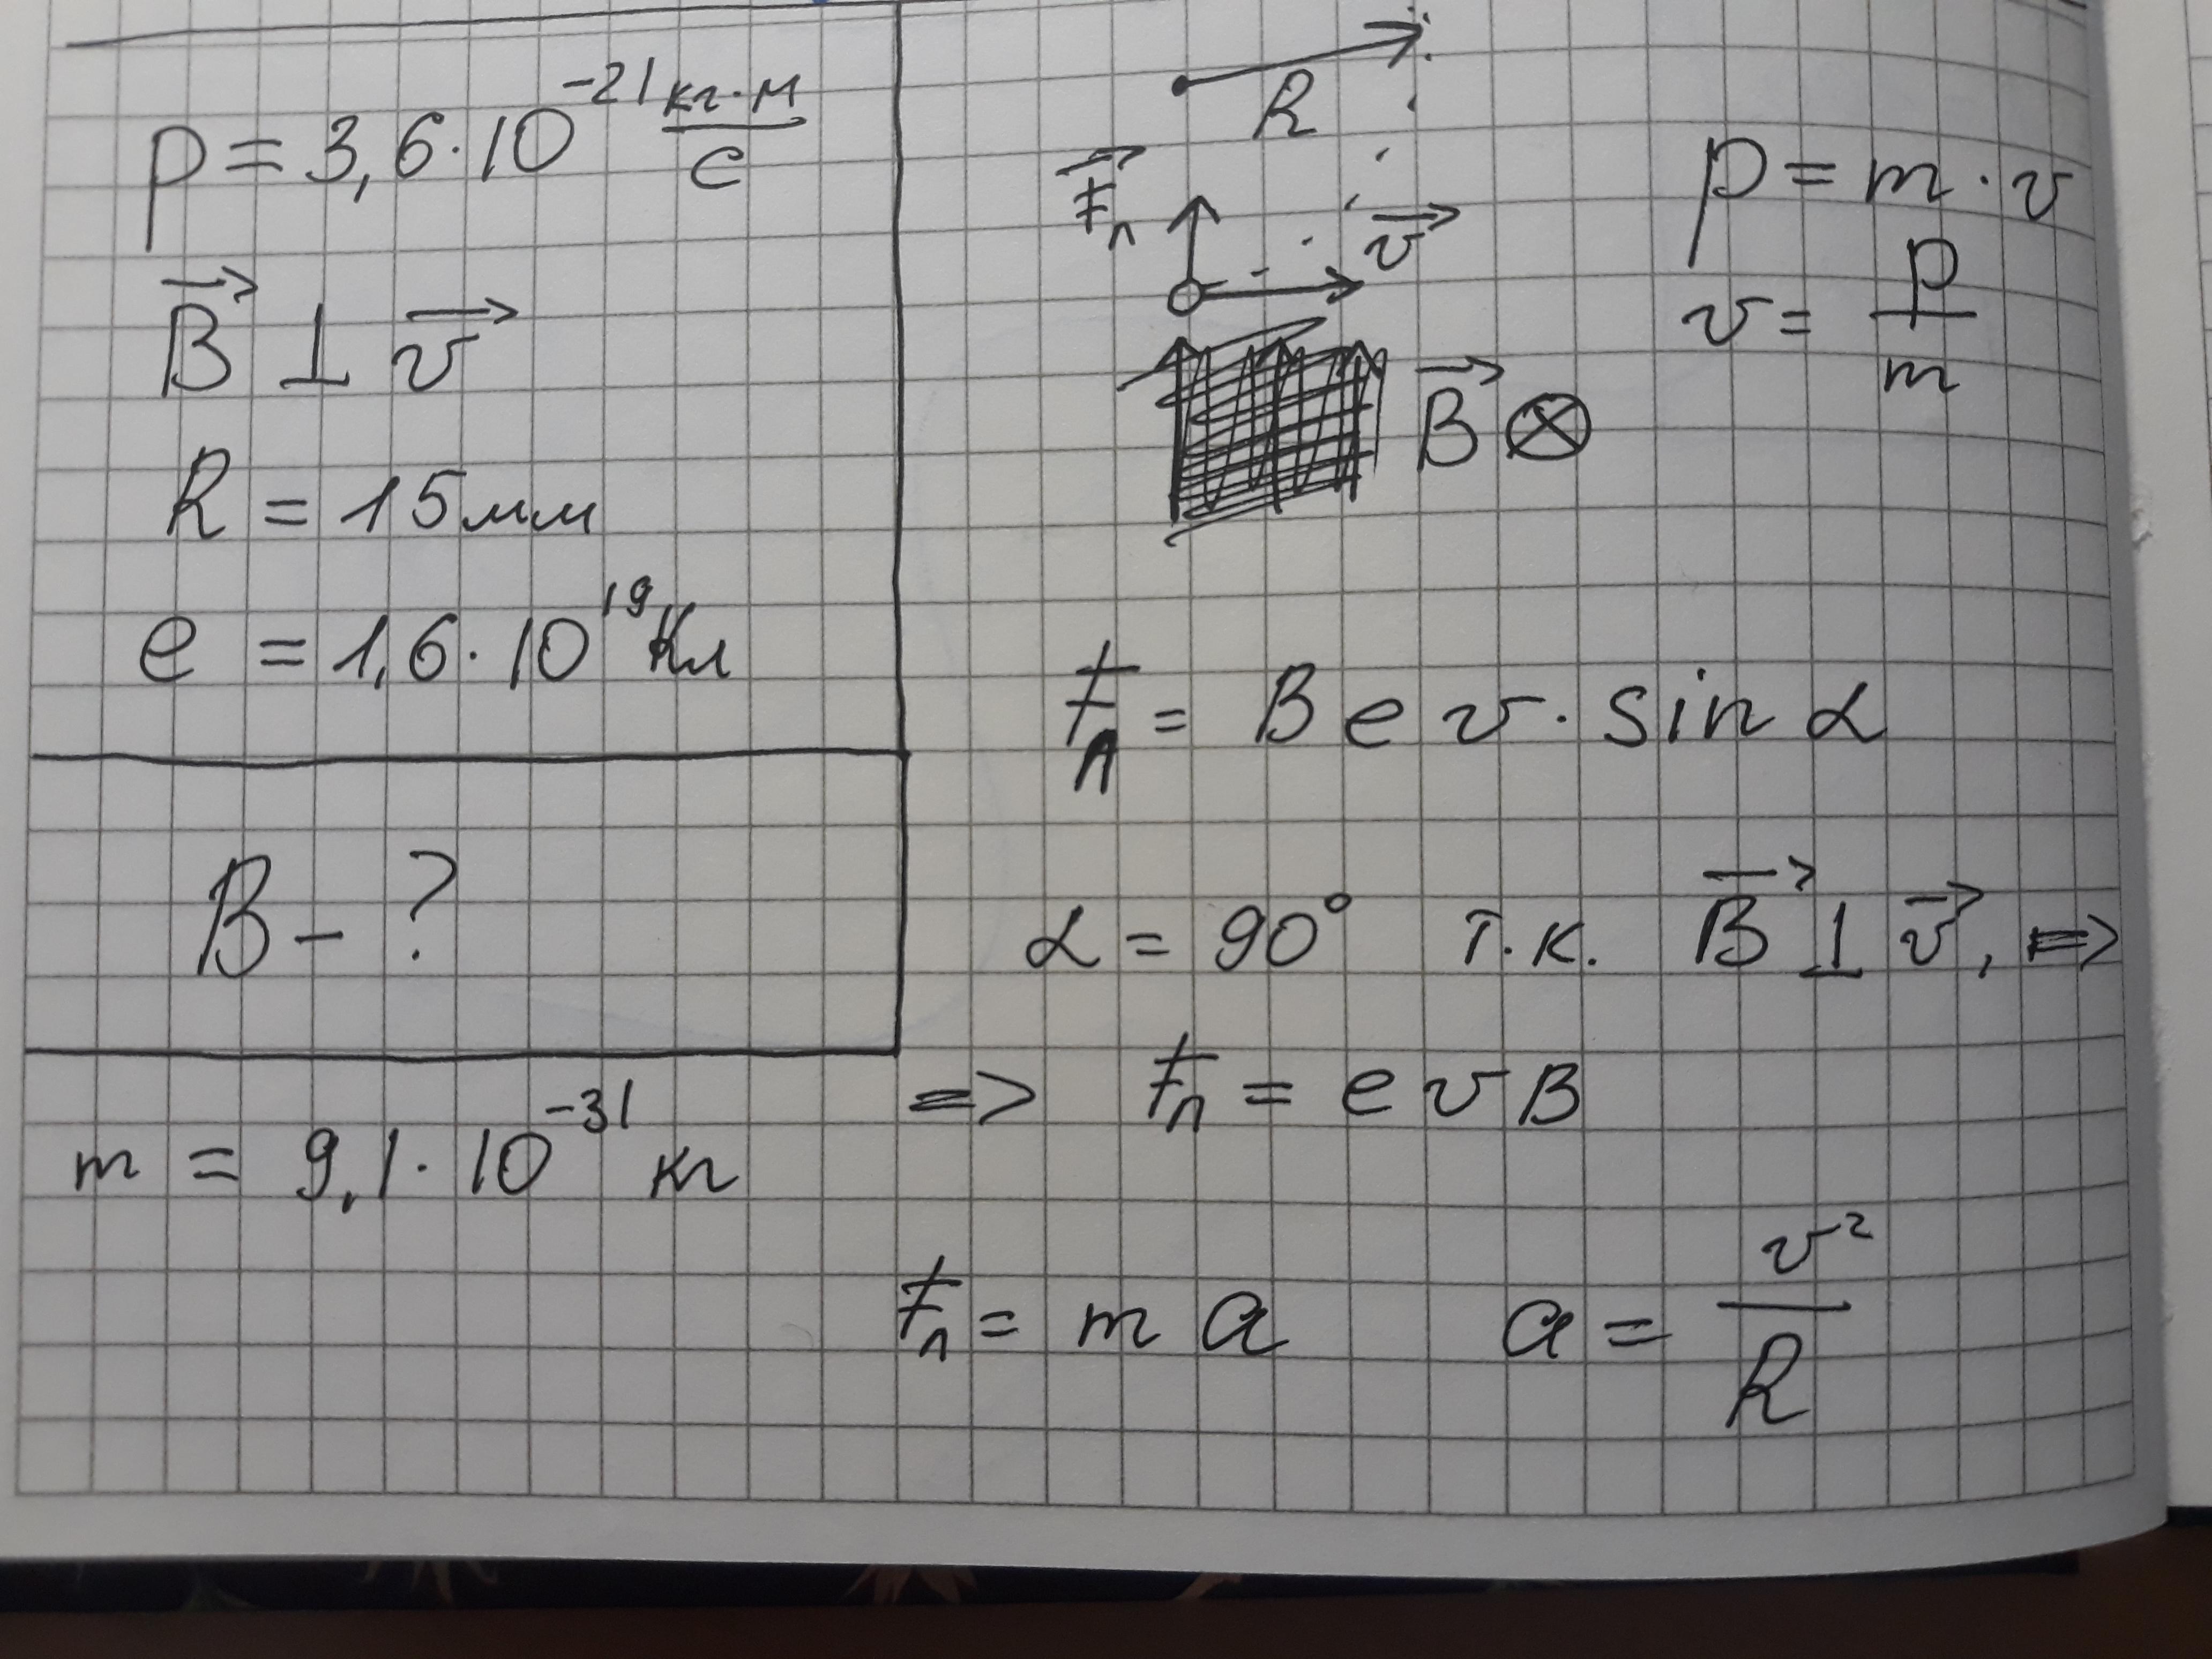 p = 3,6·10⁻²¹ кг·м/с
B⃗ ⊥ v⃗
R = 15мм
e = 1,6·10¹⁹ Кл
B - ?
m = 9,1·10⁻³¹ кг
R
F⃗л
v⃗
B⃗ ⊗
p = m·v
v = p/m
Fл = B e v · sin α
α = 90° т.к. B⃗ ⊥ v⃗, =>
=> Fл = e v B
Fл = m a a = v²/R